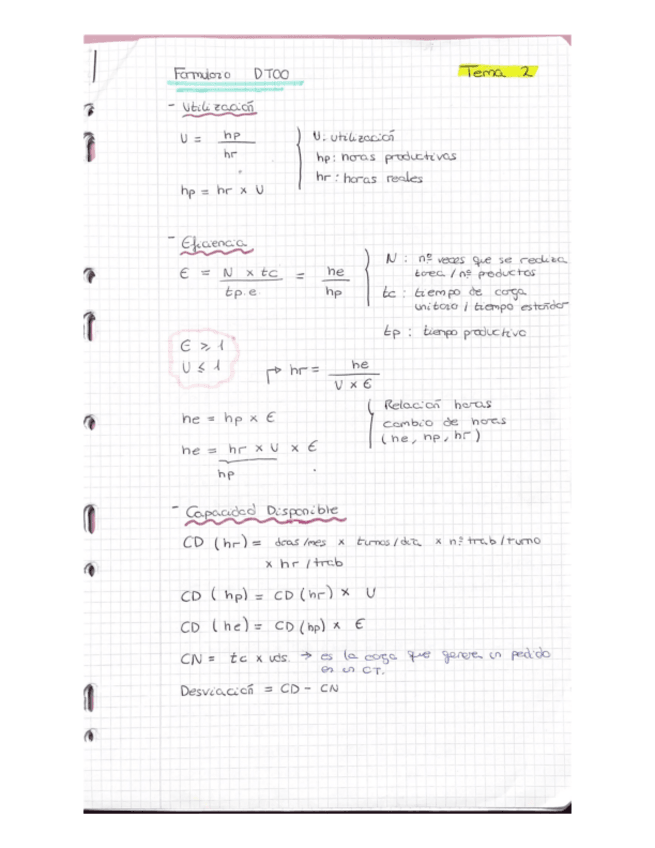 Formulario DTOO
Tema 2
- Utilización
U = hp / hr
hp = hr x U
U: utilización
hp: horas productivas
hr: horas reales
- Eficiencia
E = N x tc / tp.e = he / hp
N: nº veces que se realiza
tarea / nº productos
tc: tiempo de carga
unitario / tiempo estándar
tp: tiempo productivo
E ⩾ 1
U ≤ 1
↱ hr = he / U x E
he = hp x E
he = hr x U x E
hp
Relación horas
cambio de horas
(he, hp, hr)
- Capacidad Disponible
CD (hr) = días/mes x turnos/día x nº trab/turno
x hr / trab
CD (hp) = CD (hr) x U
CD (he) = CD (hp) x E
CN = tc x uds. → es la carga que genera un pedido
en un CT.
Desviación = CD - CN